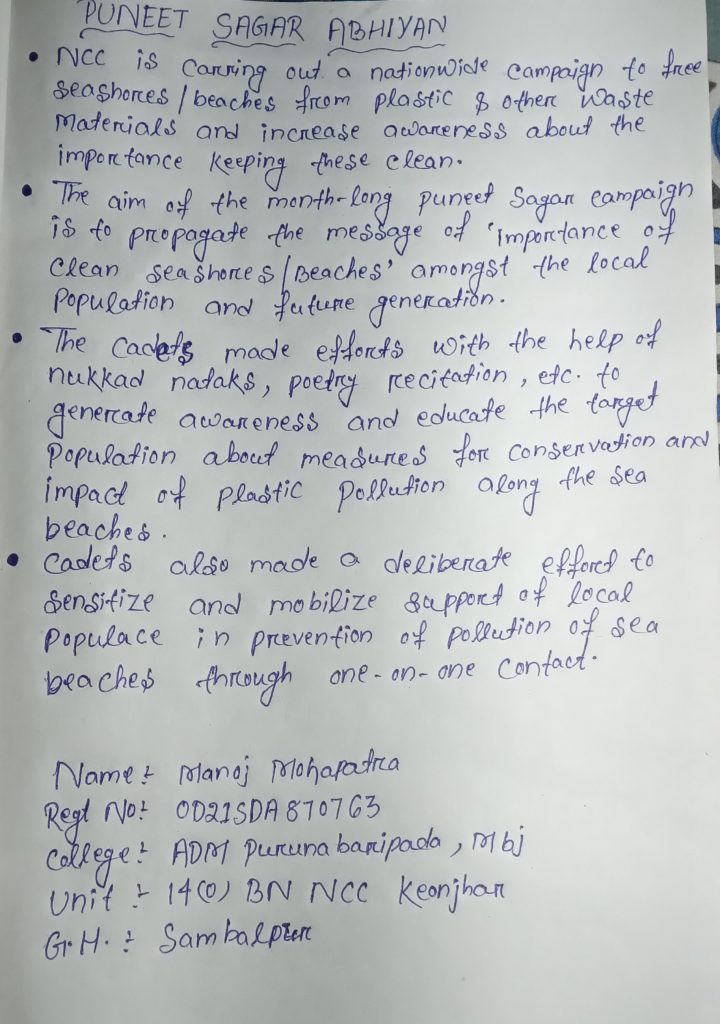 PUNEET SAGAR ABHIYAN
• NCC is Carring out a nationwide campaign to free
seashores / beaches from plastic & other waste
Materials and increase awareness about the
importance keeping these clean.
• The aim of the month-long puneet Sagar campaign
is to propagate the message of 'importance of
clean seashores / Beaches' amongst the local
population and future generation.
• The Cadets made efforts with the help of
nukkad nataks, poetry recitation, etc. to
generate awareness and educate the target
population about measures for conservation and
impact of plastic pollution along the sea
beaches.
• Cadets also made a deliberate effort to
sensitize and mobilize support of local
populace in prevention of pollution of sea
beaches through one-on-one contact.
Name :- Manoj Mohapatra
Regt No :- OD21SDA870763
College :- ADM Purunabaripada, Mbj
Unit :- 14(O) BN NCC Keonjhar
Gr. H. :- Sambalpur